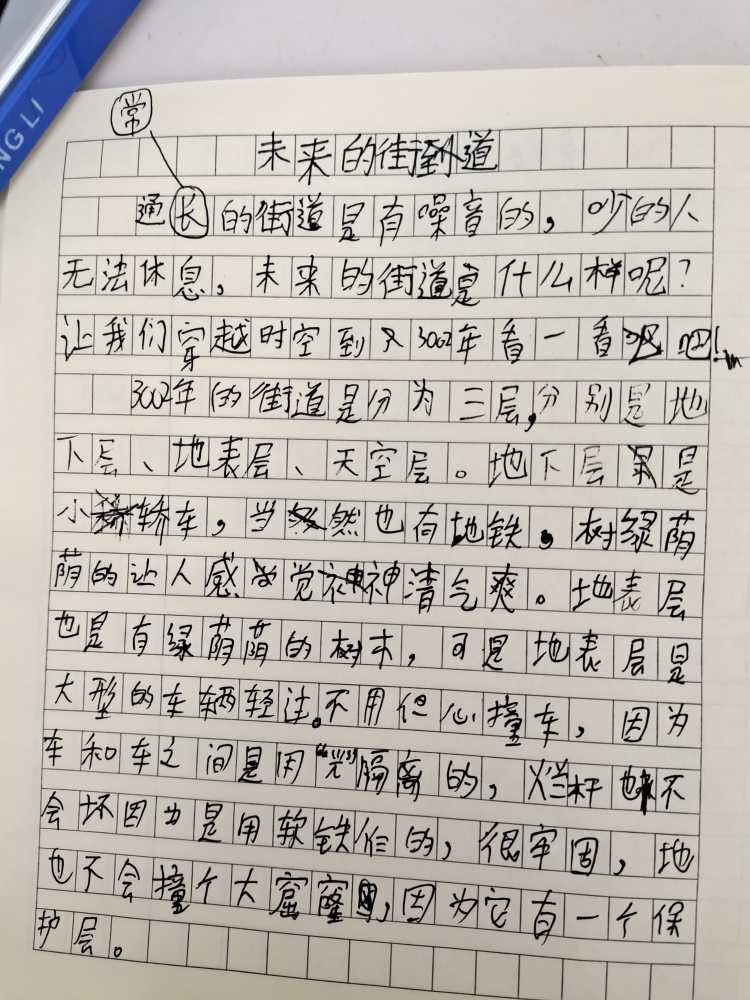 NG LI
常
未来的街道
通长的街道是有噪音的，吵的人
无法休息，未来的街道是什么样呢？
让我们穿越时空到3002年看一看吧！
3002年的街道是分为三层，分别是地
下层、地表层、天空层。地下层是
小轿车，当然也有地铁，树绿荫
荫的让人感觉神清气爽。地表层
也是有绿荫荫的树木，可是地表层是
大型的车辆轻过。不用但心撞车，因为
车和车之间是用“光”隔离的，栏杆也不
会坏因为是用软铁作的，很牢固，地
也不会撞个大窟窿，因为它有一个保
护层。